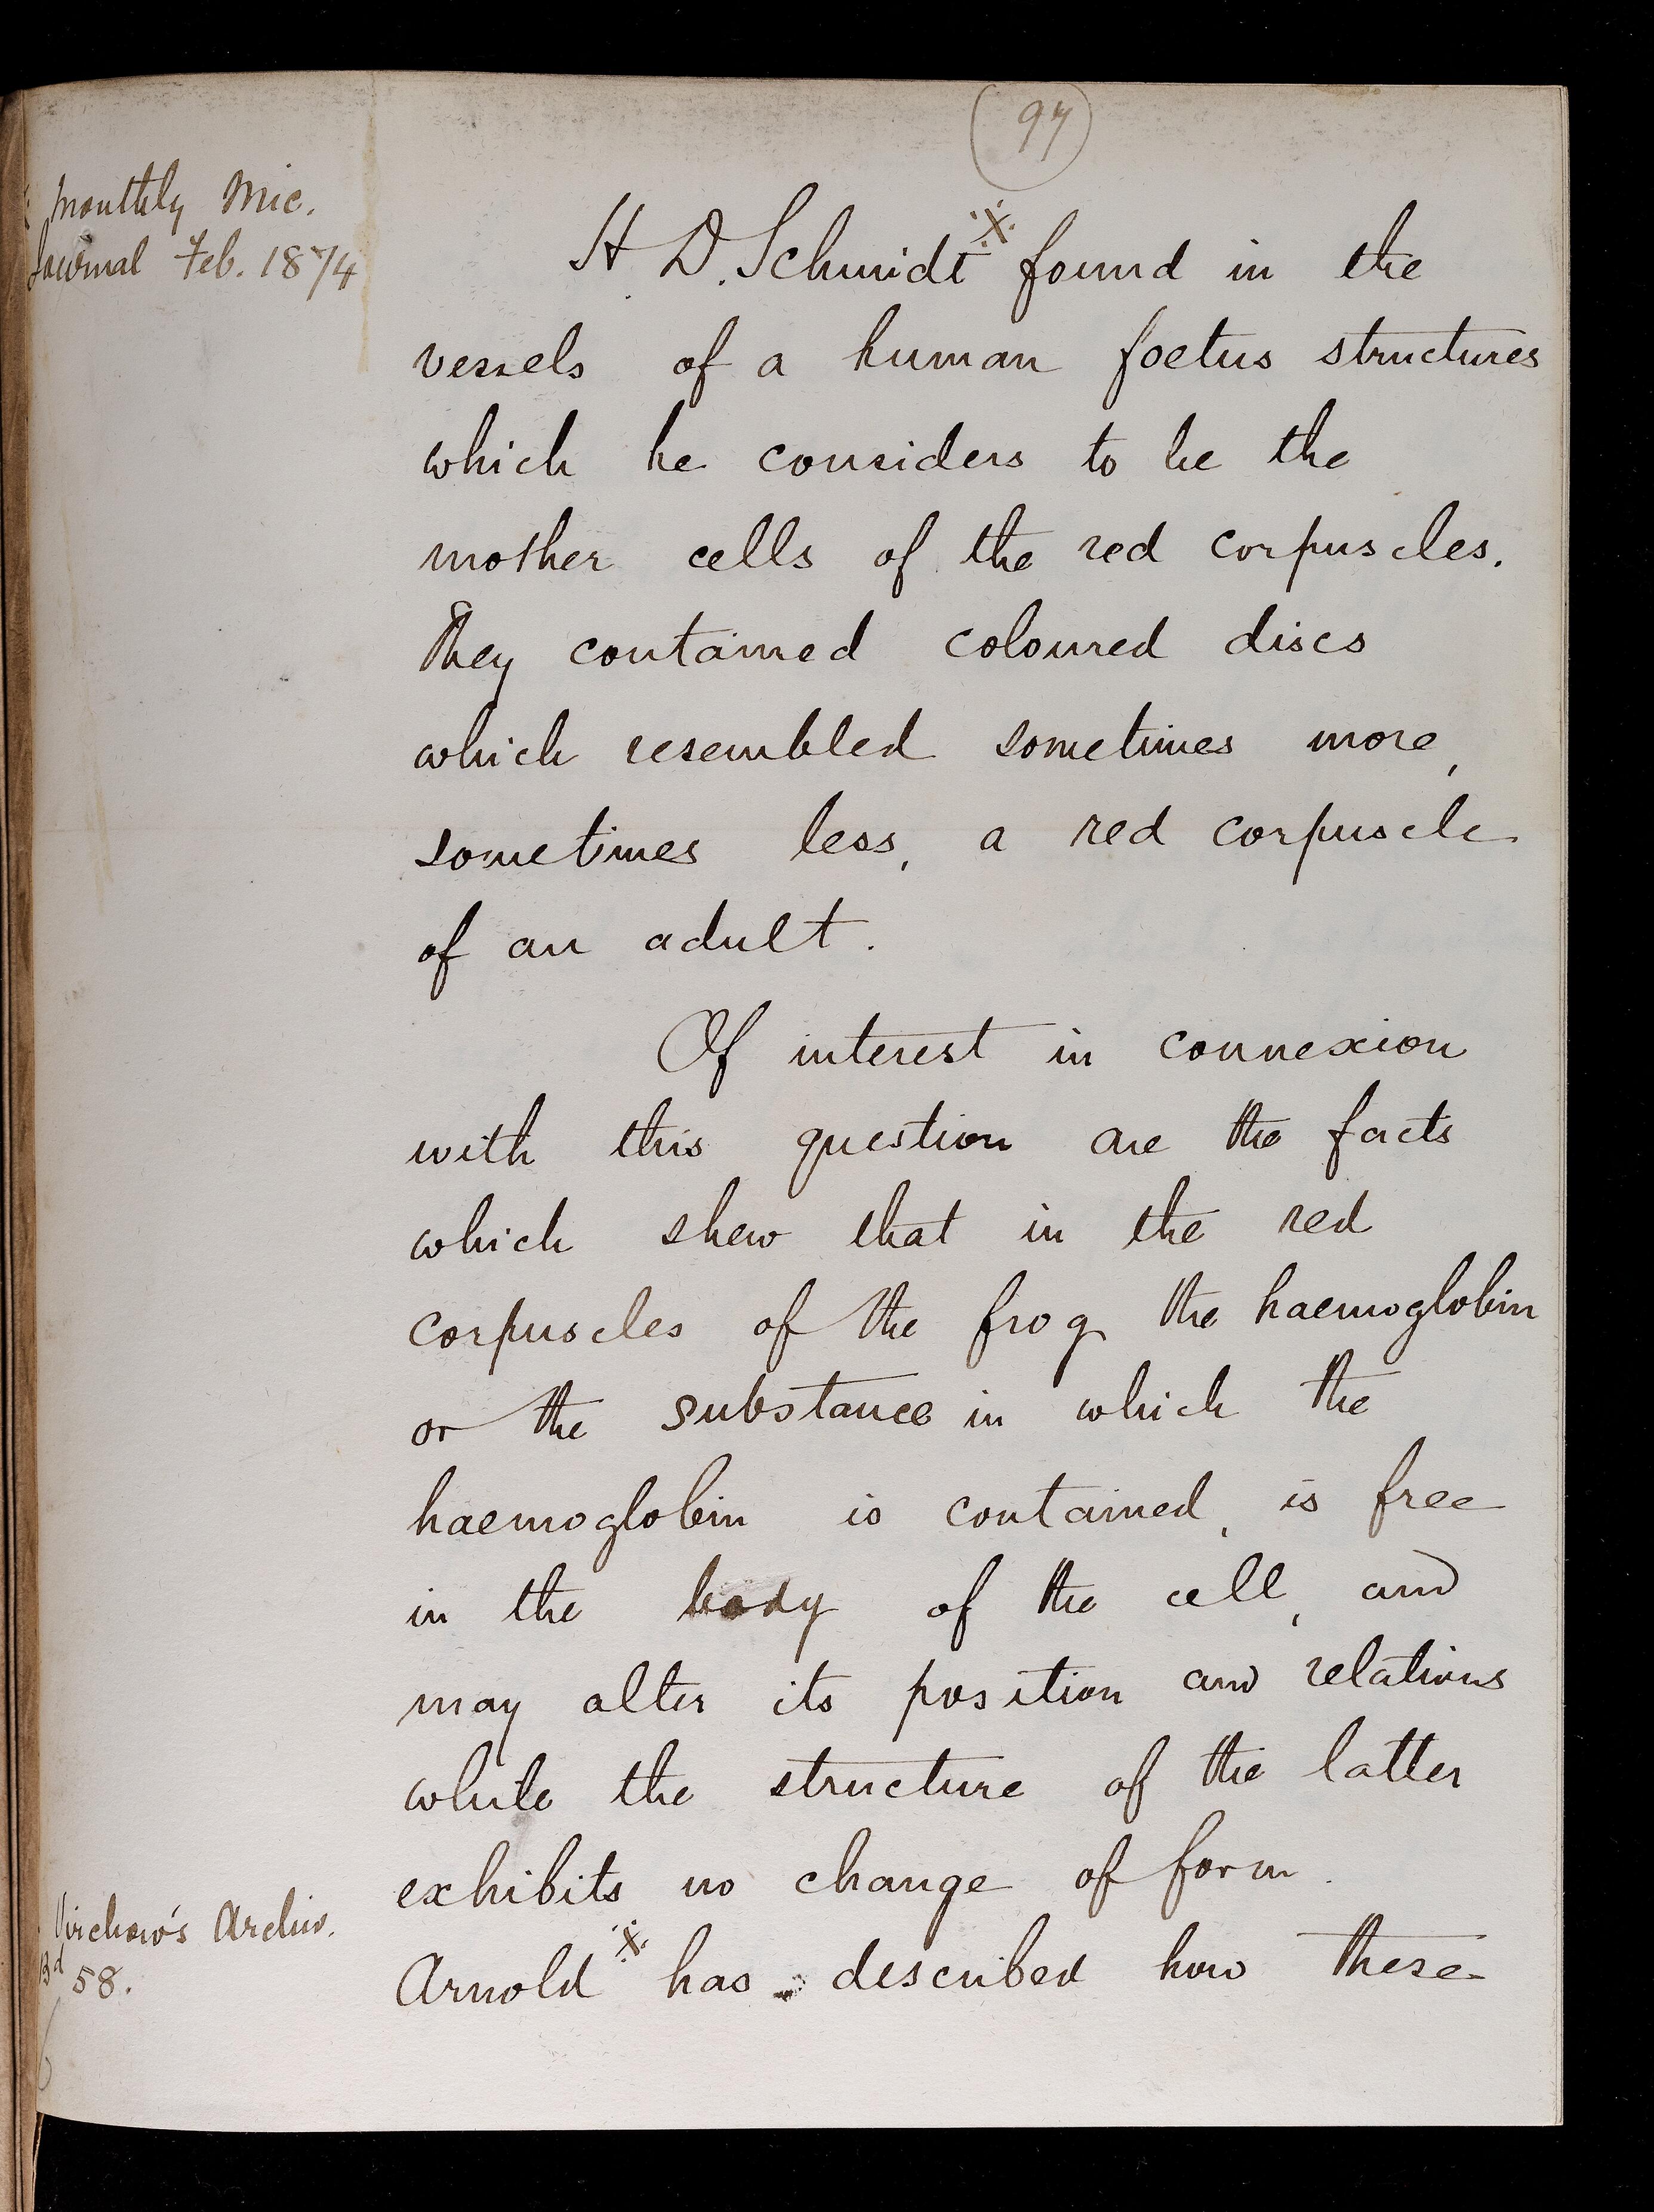 97
Monthly Mic.
Journal Feb. 1874
H. D. Schmidt ※ found in the
vessels of a human foetus structures
which he considers to be the
mother cells of the red corpuscles.
They contained coloured discs
which resembled sometimes more,
sometimes less, a red corpuscle
of an adult.
Of interest in connexion
with this question are the facts
which shew that in the red
corpuscles of the frog the haemoglobin
or the substance in which the
haemoglobin is contained, is free
in the body of the cell, and
may alter its position and relations
while the structure of the latter
exhibits no change of form.
Arnold ※ has described how these
Virchow's Archiv.
Bd 58.